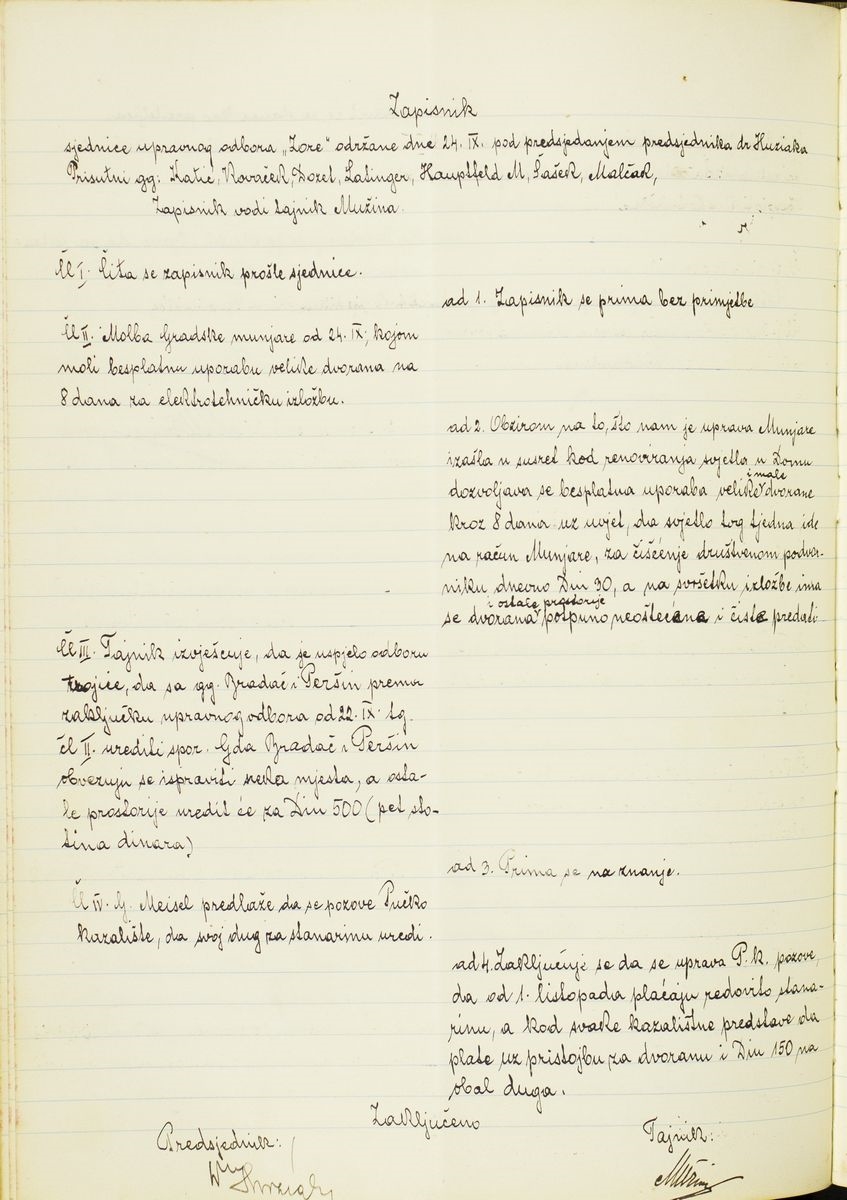 Zapisnik
sjednice upravnog odbora „Zore" održane dne 24. IX. pod predsjedanjem predsjednika dr Huziaka
Prisutni gg: Katić, Kovaček, Dozet, Latinger, Hauptfeld M, Šašek, Malčak,
Zapisnik vodi tajnik Mužina.
Čl I. Čita se zapisnik prošle sjednice.
ad 1. Zapisnik se prima bez primjetbe
Čl II. Molba Gradske munjare od 24. IX, kojom
moli besplatnu uporabu velike dvorana na
8 dana za elektrotehničku izložbu.
ad 2. Obzirom na to, što nam je uprava Munjare
izašla u susret kod renoviranja svjetla u Domu
dozvoljava se besplatna uporaba velike i male dvorane
kroz 8 dana uz uvjet, da svjetlo tog tjedna ide
na račun Munjare, za čišćenje društvenom podvor-
niku dnevno Din 30, a na svršetku izložbe ima
se dvorana i ostale prostorije potpuno neoštećene i čiste predati
Čl III. Tajnik izvješćuje, da je uspjelo odboru
trojice, da sa gg. Bradač i Peršin prema
zaključku upravnog odbora od 22. IX. tg.
čl II. urediti spor. Gda Bradač i Peršin
obvezuju se ispraviti neka mjesta, a osta-
le prostorije uredit će za Din 500 (pet sto-
tina dinara)
ad 3. Prima se na znanje.
Čl IV. G. Meisel predlaže da se pozove Pučko
kazalište, da svoj dug za stanarinu uredi.
ad 4. Zaključuje se da se uprava P. k. pozove,
da od 1. listopada plaćaju redovito stana-
rinu, a kod svake kazalištne predstave da
plate uz pristojbu za dvoranu i Din 150 na
obal duga.
Zaključeno
Predsjednik:
Tajnik: